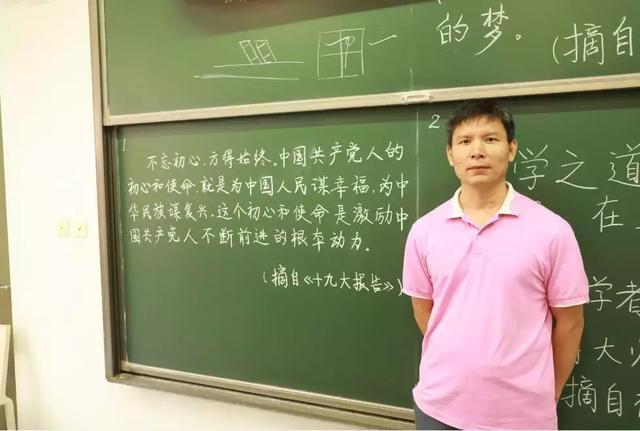 的梦。
(摘自
1
不忘初心,方得始终。中国共产党人的
初心和使命,就是为中国人民谋幸福,为中
华民族谋复兴。这个初心和使命是激励中
国共产党人不断前进的根本动力。
(摘自《十九大报告》)
2
学之道
在
学者
大
摘自